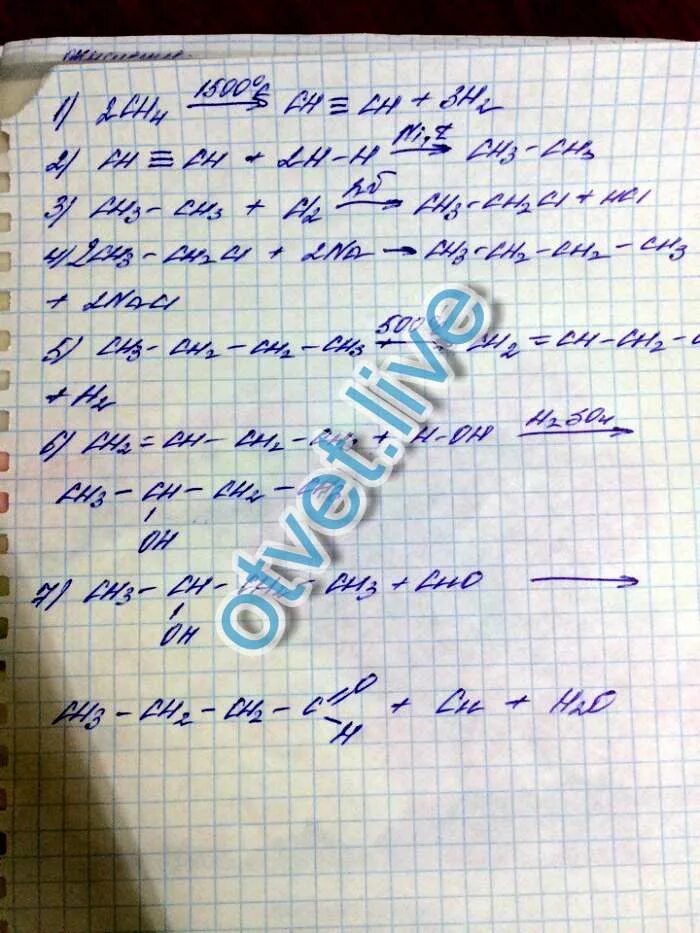 1) 2CH4 1500°C → CH ≡ CH + 3H2
2) CH ≡ CH + 2H-H Ni, t → CH3 - CH3
3) CH3 - CH3 + Cl2 hδ → CH3 - CH2Cl + HCl
4) 2CH3 - CH2Cl + 2Na → CH3 - CH2 - CH2 - CH3
+ 2NaCl
5) CH3 - CH2 - CH2 - CH3 500° → CH2 = CH - CH2 - C
+ H2
6) CH2 = CH - CH2 - CH3 + H-OH H2SO4 →
CH3 - CH - CH2 - CH3
OH
7) CH3 - CH - CH2 - CH3 + CuO →
OH
CH3 - CH2 - CH2 - C =O + Cu + H2O
- H
otvet.live